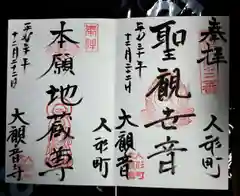 奉拝
三番
人形町
聖観世音
平成三十年
十二月二十二日
大観音寺
人形町
本願地蔵尊
平成三十年
十二月二十二日
大観音寺